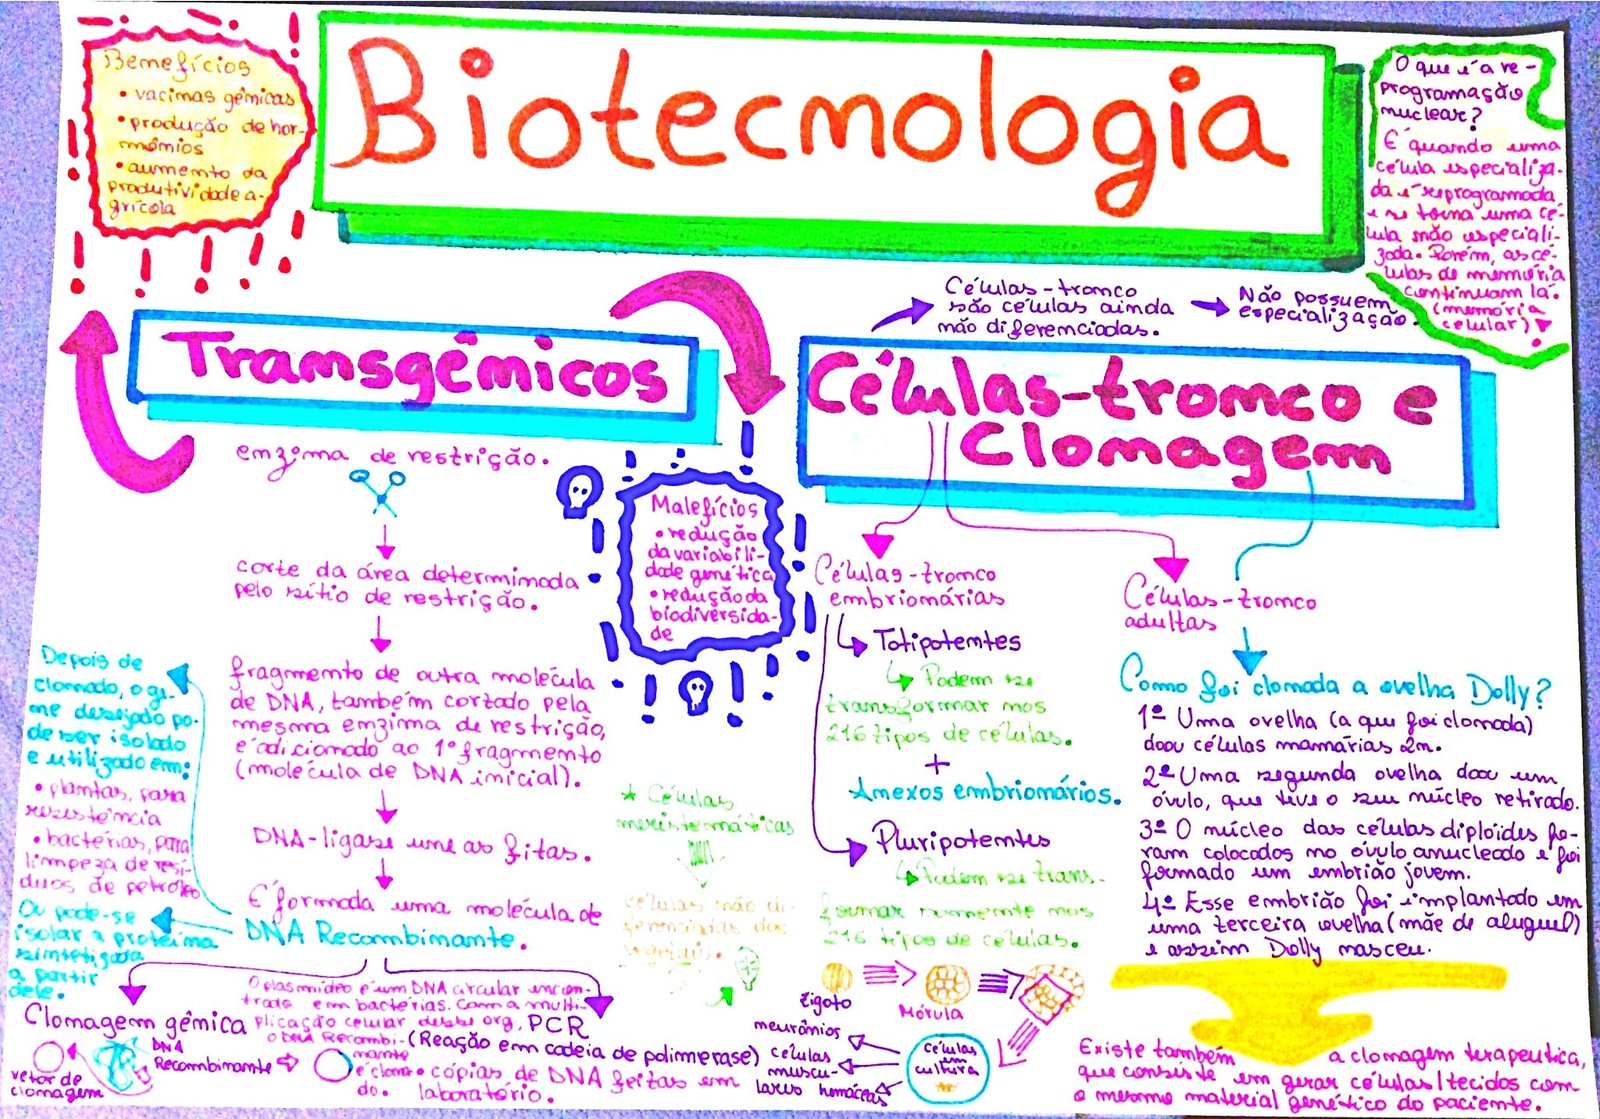 Biotecnologia
Benefícios
• vacinas gênicas
• produção de hor-
mônios
• aumento da
produtividade a-
grícola
O que é a re-
programação
nuclear?
É quando uma
célula especializa-
da é reprogramada
e se torna uma cé-
lula não especiali-
zada. Porém, as cé-
lulas de memória
continuam lá.
(memória
celular)
Transgênicos
enzima de restrição.
corte da área determinada
pelo sítio de restrição.
fragmento de outra molécula
de DNA, também cortado pela
mesma enzima de restrição,
é adicionado ao 1º fragmento
(molécula de DNA inicial).
DNA-ligase une as fitas.
É formada uma molécula de
DNA Recombinante.
Depois de
clonado, o ge-
ne desejado po-
de ser isolado
e utilizado em:
• plantas, para
resistência
• bactérias, para
limpeza de resí-
duos de petróleo
Ou pode-se
isolar a proteína
sintetizada
a partir
dele.
Clonagem gênica
vetor de
clonagem
DNA
Recombinante
O plasmídeo é um DNA circular encon-
trado em bactérias. Com a multi-
plicação celular desse org,
o DNA Recombi-
nante
é clona-
do.
PCR
(Reação em cadeia de polimerase)
• cópias de DNA feitas em
laboratório.
Malefícios
• redução
da variabili-
dade genética
• redução da
biodiversida-
de
Células-tronco
são células ainda
não diferenciadas.
Não possuem
especialização.
Células-tronco e
Clonagem
Células-tronco
embrionárias
Totipotentes
Podem se
transformar nos
216 tipos de células.
+
Anexos embrionários.
Pluripotentes
Podem se trans-
formar somente nos
216 tipos de células.
★ Células
meristemáticas
células não di-
ferenciadas dos
vegetais.
Zigoto
Mórula
células
em
cultura
neurônios
células
muscu-
lares
hemáceas
Células-tronco
adultas
Como foi clonada a ovelha Dolly?
1º Uma ovelha (a que foi clonada)
doou células mamárias 2n.
2º Uma segunda ovelha doou um
óvulo, que teve o seu núcleo retirado.
3º O núcleo das células diplóides fo-
ram colocados no óvulo anucleado e foi
formado um embrião jovem.
4º Esse embrião foi implantado em
uma terceira ovelha (mãe de aluguel)
e assim Dolly nasceu.
Existe também a clonagem terapeutica,
que consiste em gerar células/tecidos com
o mesmo material genético do paciente.